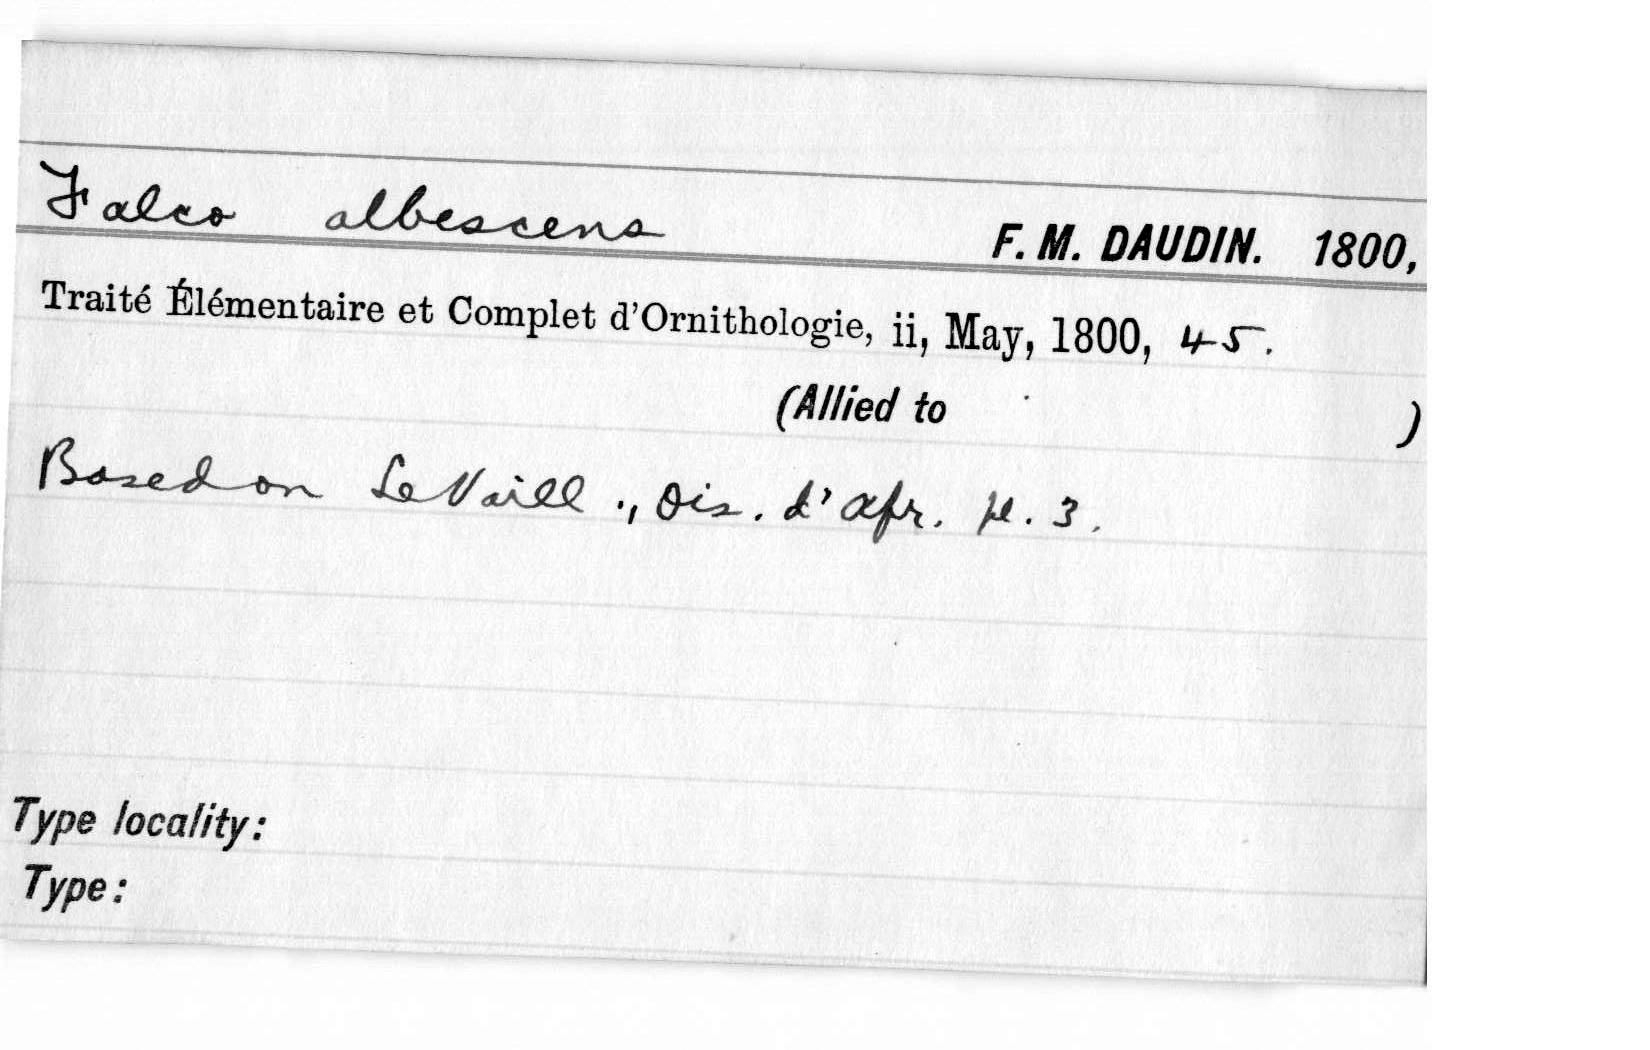 Falco albescens F. M. DAUDIN. 1800,
Traité Élémentaire et Complet d'Ornithologie, ii, May, 1800, 45.
(Allied to )
Based on Le Vaill., Ois. d'Afr. pl. 3.
Type locality:
Type: